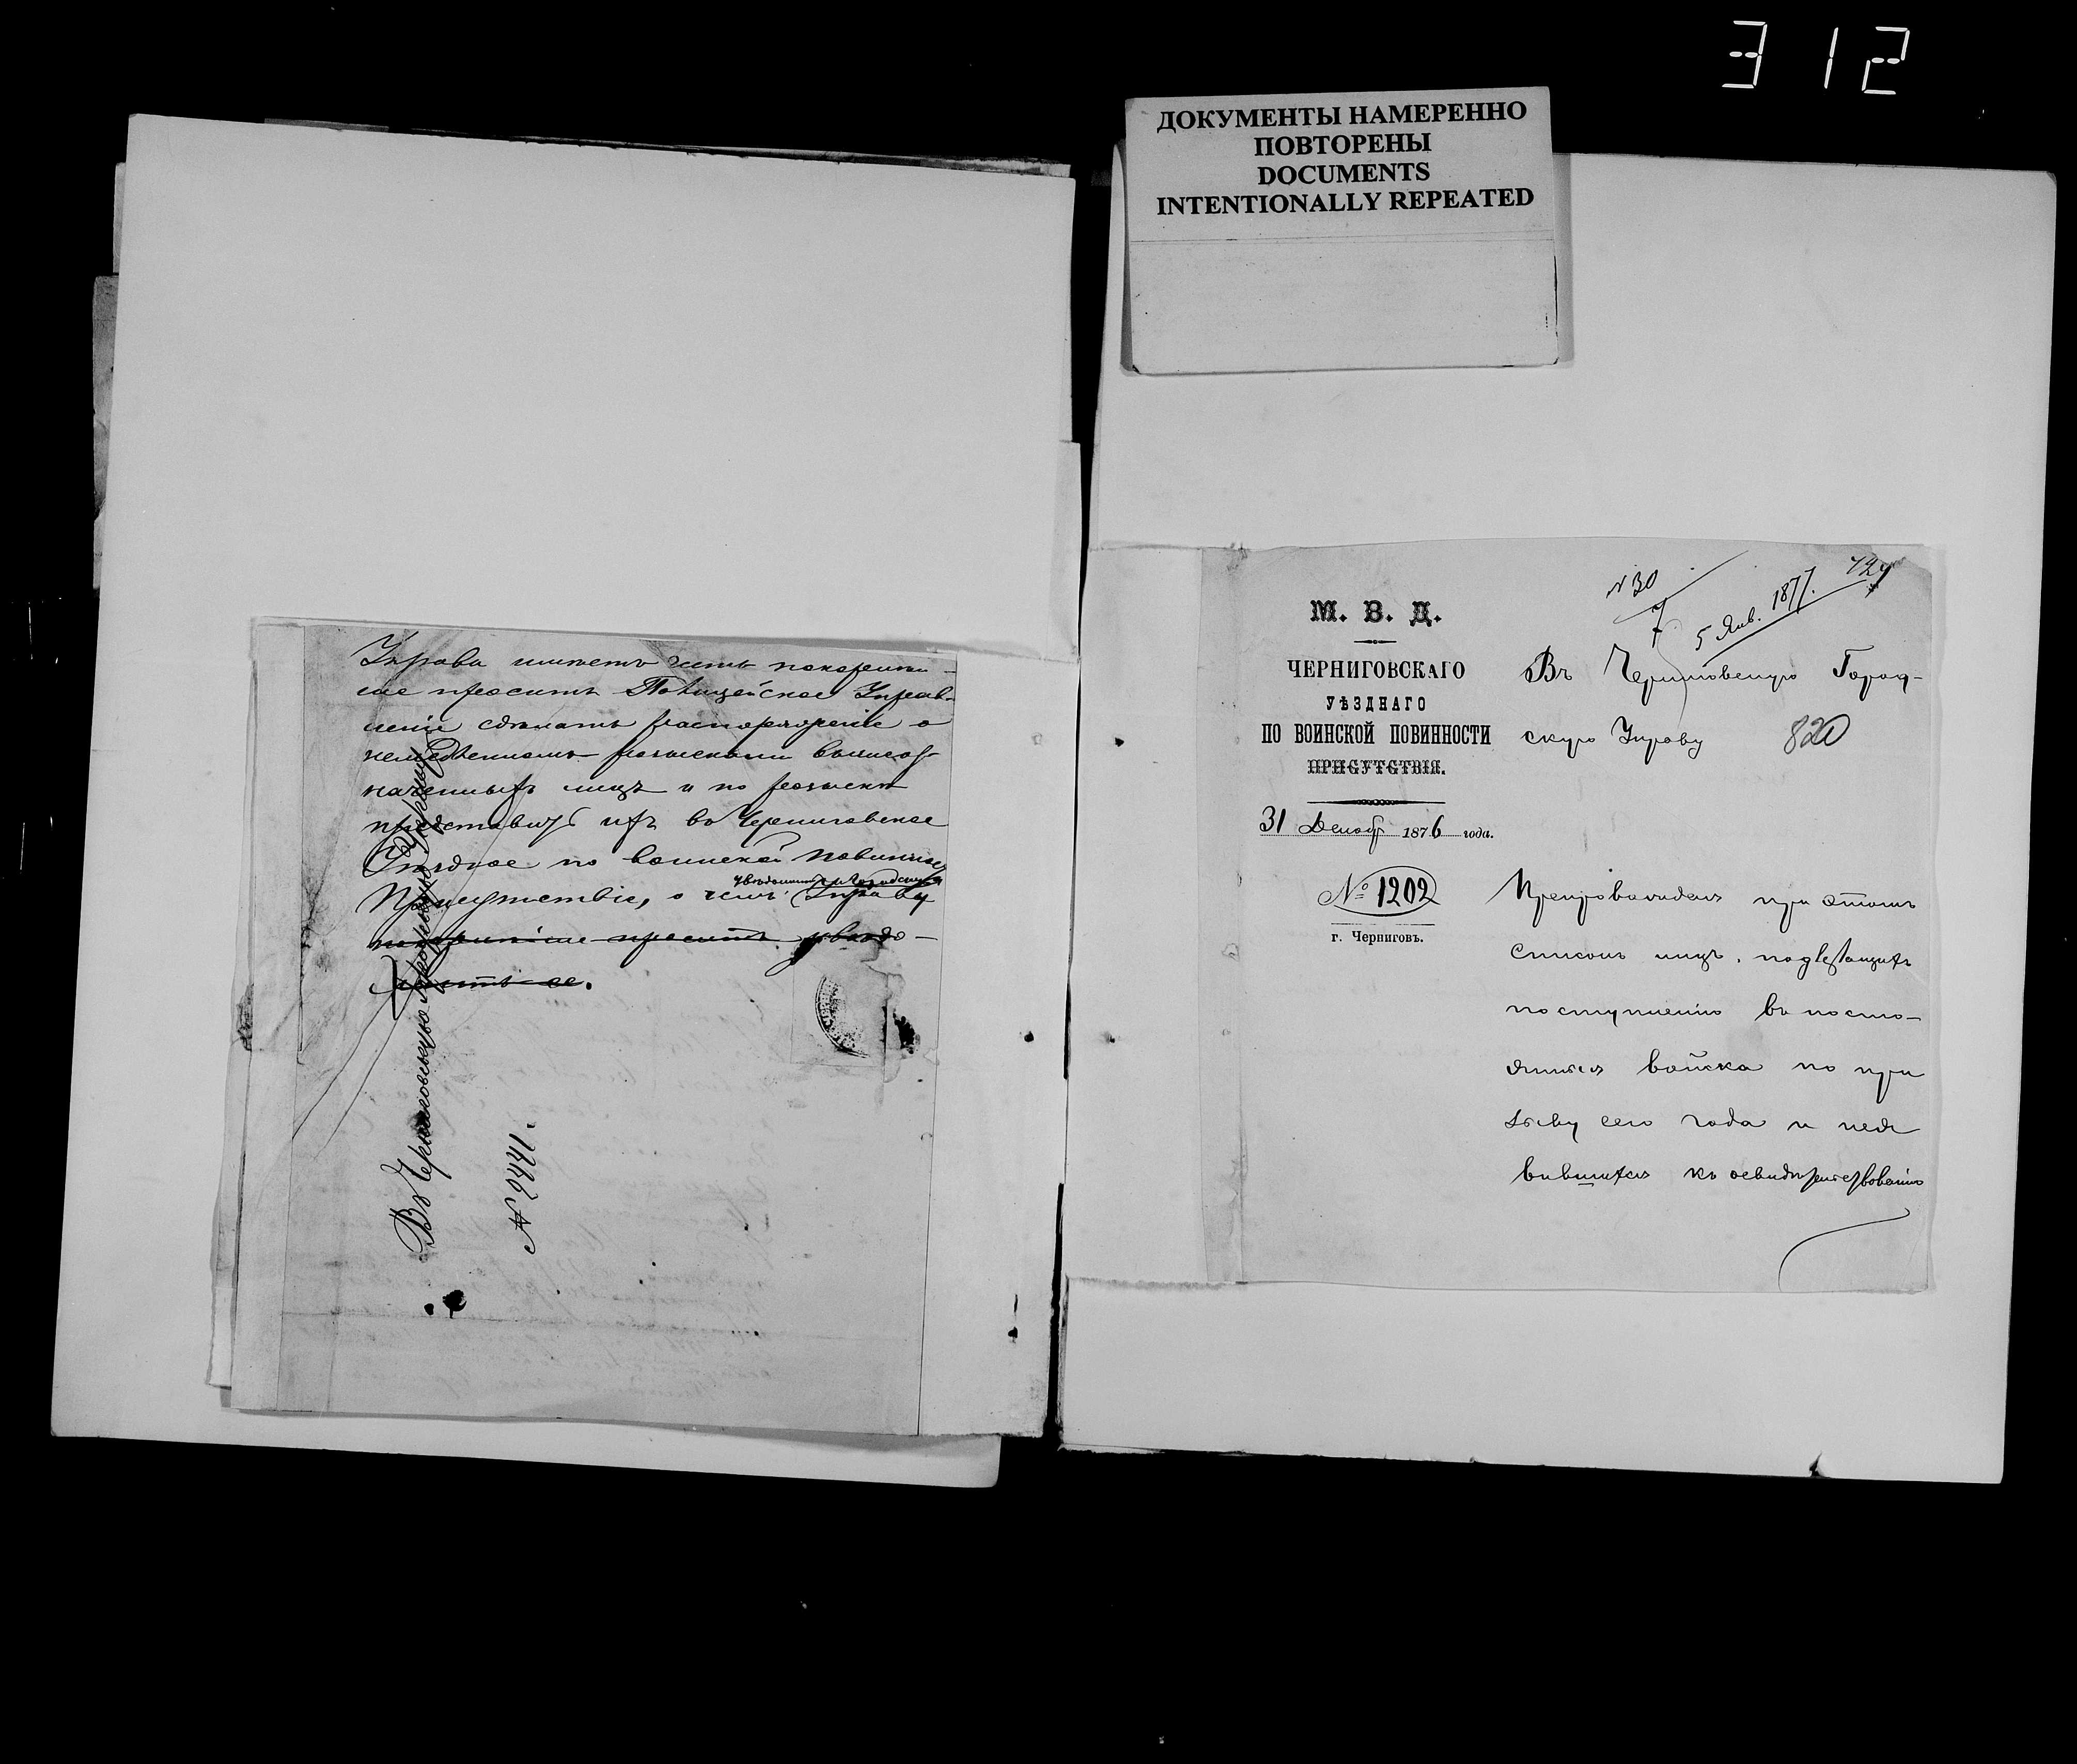 312
ДОКУМЕНТЫ НАМЕРЕННО
ПОВТОРЕНЫ
DOCUMENTS
INTENTIONALLY REPEATED
Управа имѣетъ честь покорнѣй-
ше просить Полицейское Управ-
леніе сдѣлать распоряженіе о
немедленномъ розысканіи вышеоз-
наченныхъ лицъ и по розыскѣ
представить ихъ въ Черниговское
Уѣздное по воинской повинности
увѣдомить и Городскую
Присутствіе, о чемъ Управу
покорнѣйше проситъ увѣдо-
мить ее.
Въ Черниговскую Городскую Управу
№ 2441.
М. В. Д.
ЧЕРНИГОВСКАГО
УѢЗДНАГО
ПО ВОИНСКОЙ ПОВИННОСТИ
ПРИСУТСТВІЯ.
31 Декаб 1876 года.
№ 1202
г. Черниговъ.
№ 30
7
5 Янв. 1877.
Въ Черниговскую Город-
скую Управу
820
Препровождая при этомъ
списокъ лицъ, подлежащихъ
поступленію въ посто-
янныя войска по при
зыву сего года и нея
вившихся къ освидѣтельствованію